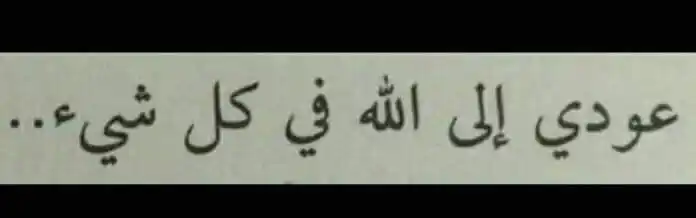 عودي إلى الله في كل شيء..